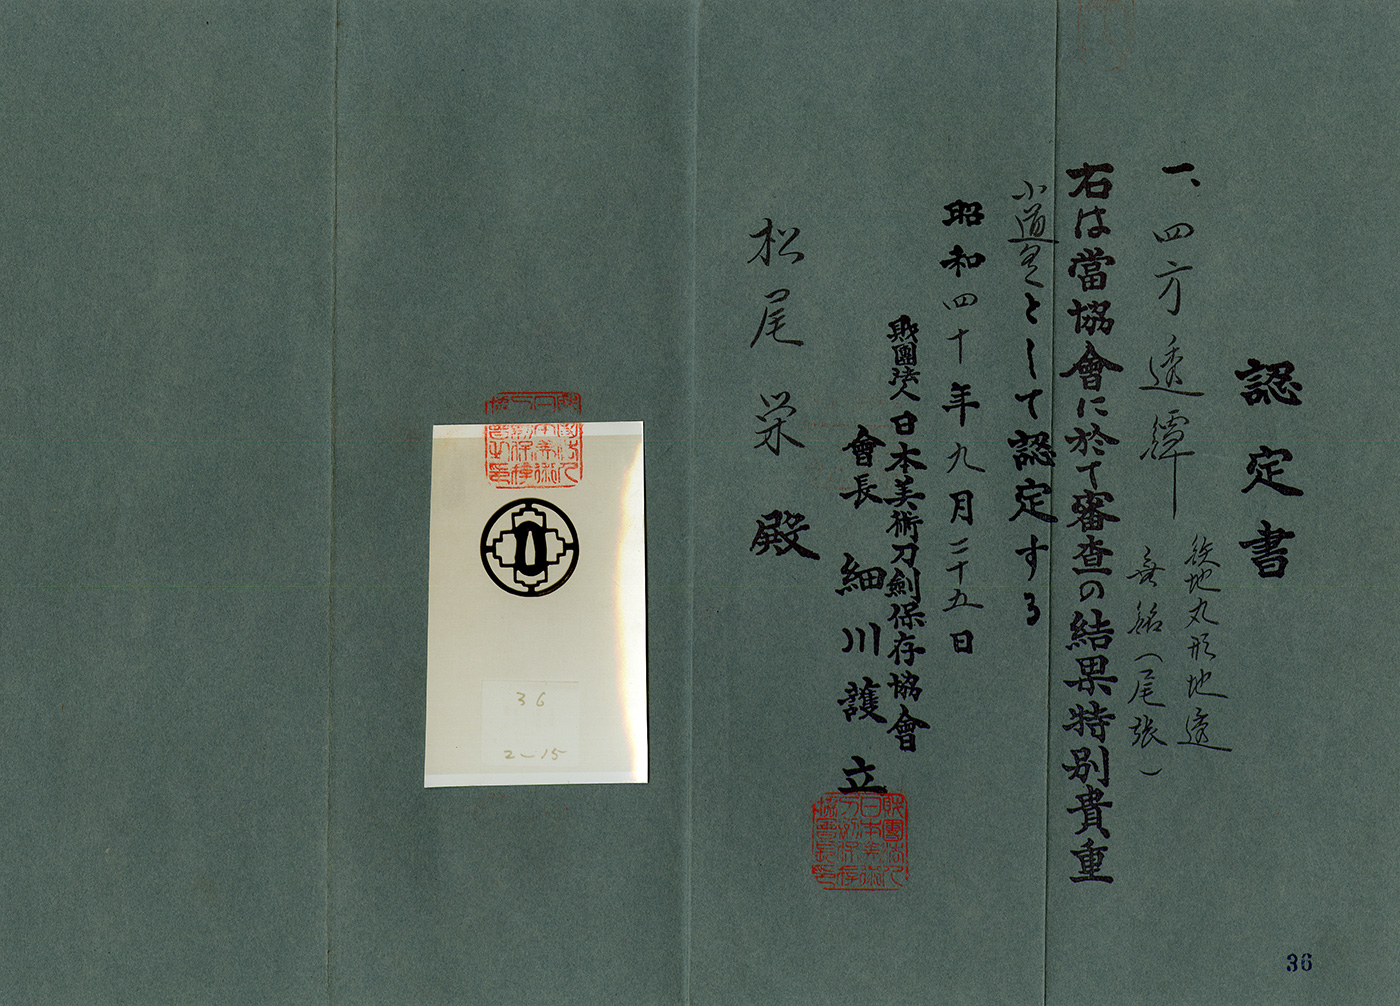 認定書
一、四方透鐔
鉄地丸形地透
無銘（尾張）
右は當協會に於て審査の結果特別貴重
小道具として認定する
昭和四十年九月二十五日
財團法人日本美術刀劍保存協會
會長 細川護立
財團法人日本美術刀劍保存協會長之印
松尾栄殿
36
2-15
36